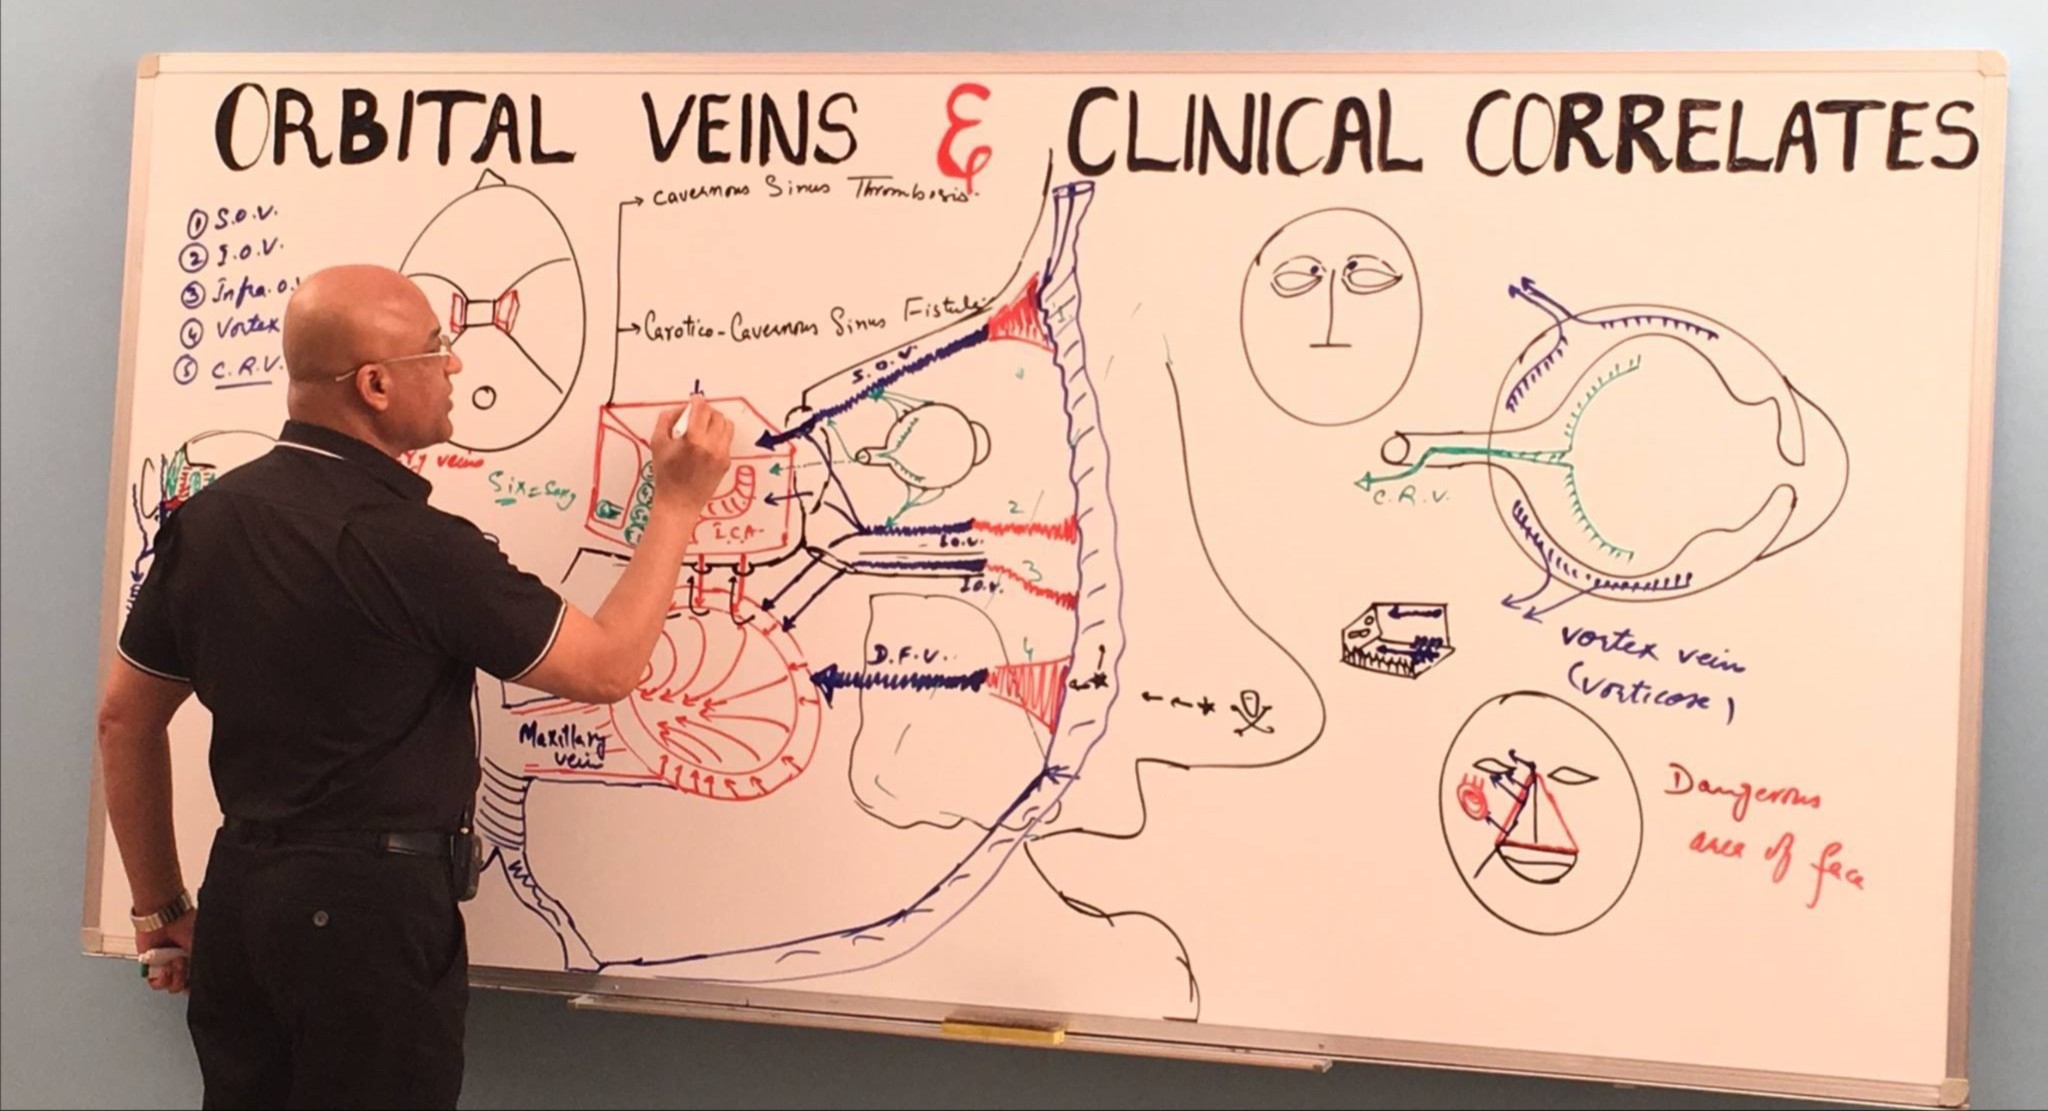 ORBITAL VEINS & CLINICAL CORRELATES
① S.O.V.
② I.O.V.
③ Infra.o.
④ Vortex
⑤ C.R.V.
Cavernous Sinus Thrombosis.
Carotico-Cavernous Sinus Fistula
S.O.V.
1
Six = Song
I.C.A.
2
I.O.V.
3
I.O.V.
4
D.F.V.
Maxillary
vein
veins
C.R.V.
Vortex vein
(vorticose)
Dangerous
area of face